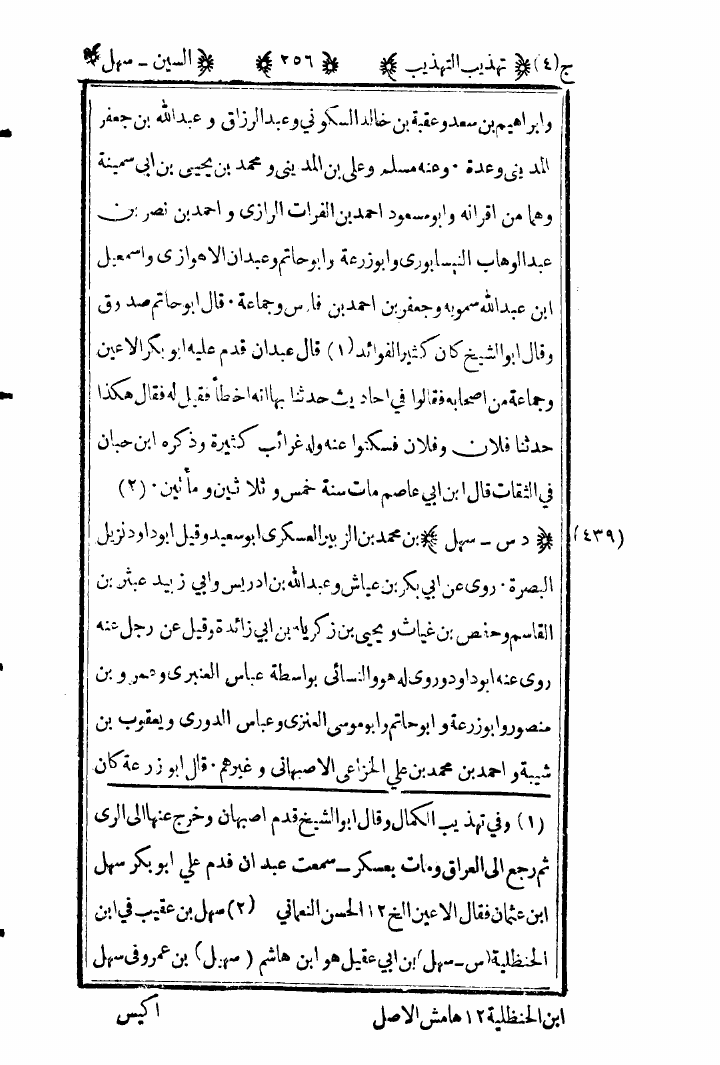 ج(٤) ﴿ تهذيب التهذيب ﴾ ﴿ ٢٥٦ ﴾ ﴿ السين – سهل ﴾
وابراهيم بن سعد وعقبة بن خالد السكوني وعبد الرزاق و عبدالله بن جعفر
المديني وعدة ٠ وعنه مسلم وعلي بن المديني و محمد بن يحيى بن ابي سمينة
وهما من اقرانه وابو مسعود احمد بن الفرات الرازى و احمد بن نصر بن
عبد الوهاب النيسابورى وابو زرعة وابو حاتم وعبدان الاهوازى واسمعيل
ابن عبدالله سمويه وجعفر بن احمد بن فارس وجماعة ٠ قال ابو حاتم صدوق
وقال ابو الشيخ كان كثير الفوائد (١) قال عبدان قدم عليه ابو بكر الاعين
وجماعة من اصحابه فقالوا في احاديث حدثنا بها انه اخطأ فقيل له فقال هكذا
حدثنا فلان وفلان فسكتوا عنه وله غرائب كثيرة وذكره ابن حبان
في الثقات قال ابن ابي عاصم مات سنة خمس و ثلاثين و مأتين ٠ (٢)
(٤٣٩) ﴿ د س – سهل ﴾ بن محمد بن الزبير العسكرى ابو سعيد وقيل ابو داود نزيل
البصرة ٠ روى عن ابي بكر بن عياش وعبدالله بن ادريس وابي زبيد عبثر بن
القاسم وحفص بن غياث و يحيى بن زكرياء بن ابي زائدة وقيل عن رجل عنه
روى عنه ابو داود وروى له هو والنسائى بواسطة عباس العنبرى وعمرو بن
منصور وابو زرعة و ابو حاتم وابو موسى العنزى وعباس الدورى و يعقوب بن
شيبة و احمد بن محمد بن علي الخزاعى الاصبهانى و غيرهم ٠ قال ابو زرعة كان
(١) وفي تهذيب الكمال وقال ابو الشيخ قدم اصبهان وخرج عنها الى الرى
ثم رجع الى العراق ومات بعسكر – سمعت عبدان قدم علي ابو بكر سهل
ابن عثمان فقال الاعين الخ ١٢ الحسن النعماني (٢) سهل بن عقيب في ابن
الحنظلية (س – سهل) ابن ابي عقيل هو ابن هاشم (سهيل) بن عمرو في سهل
ابن الحنظلية ١٢ هامش الاصل اكيس